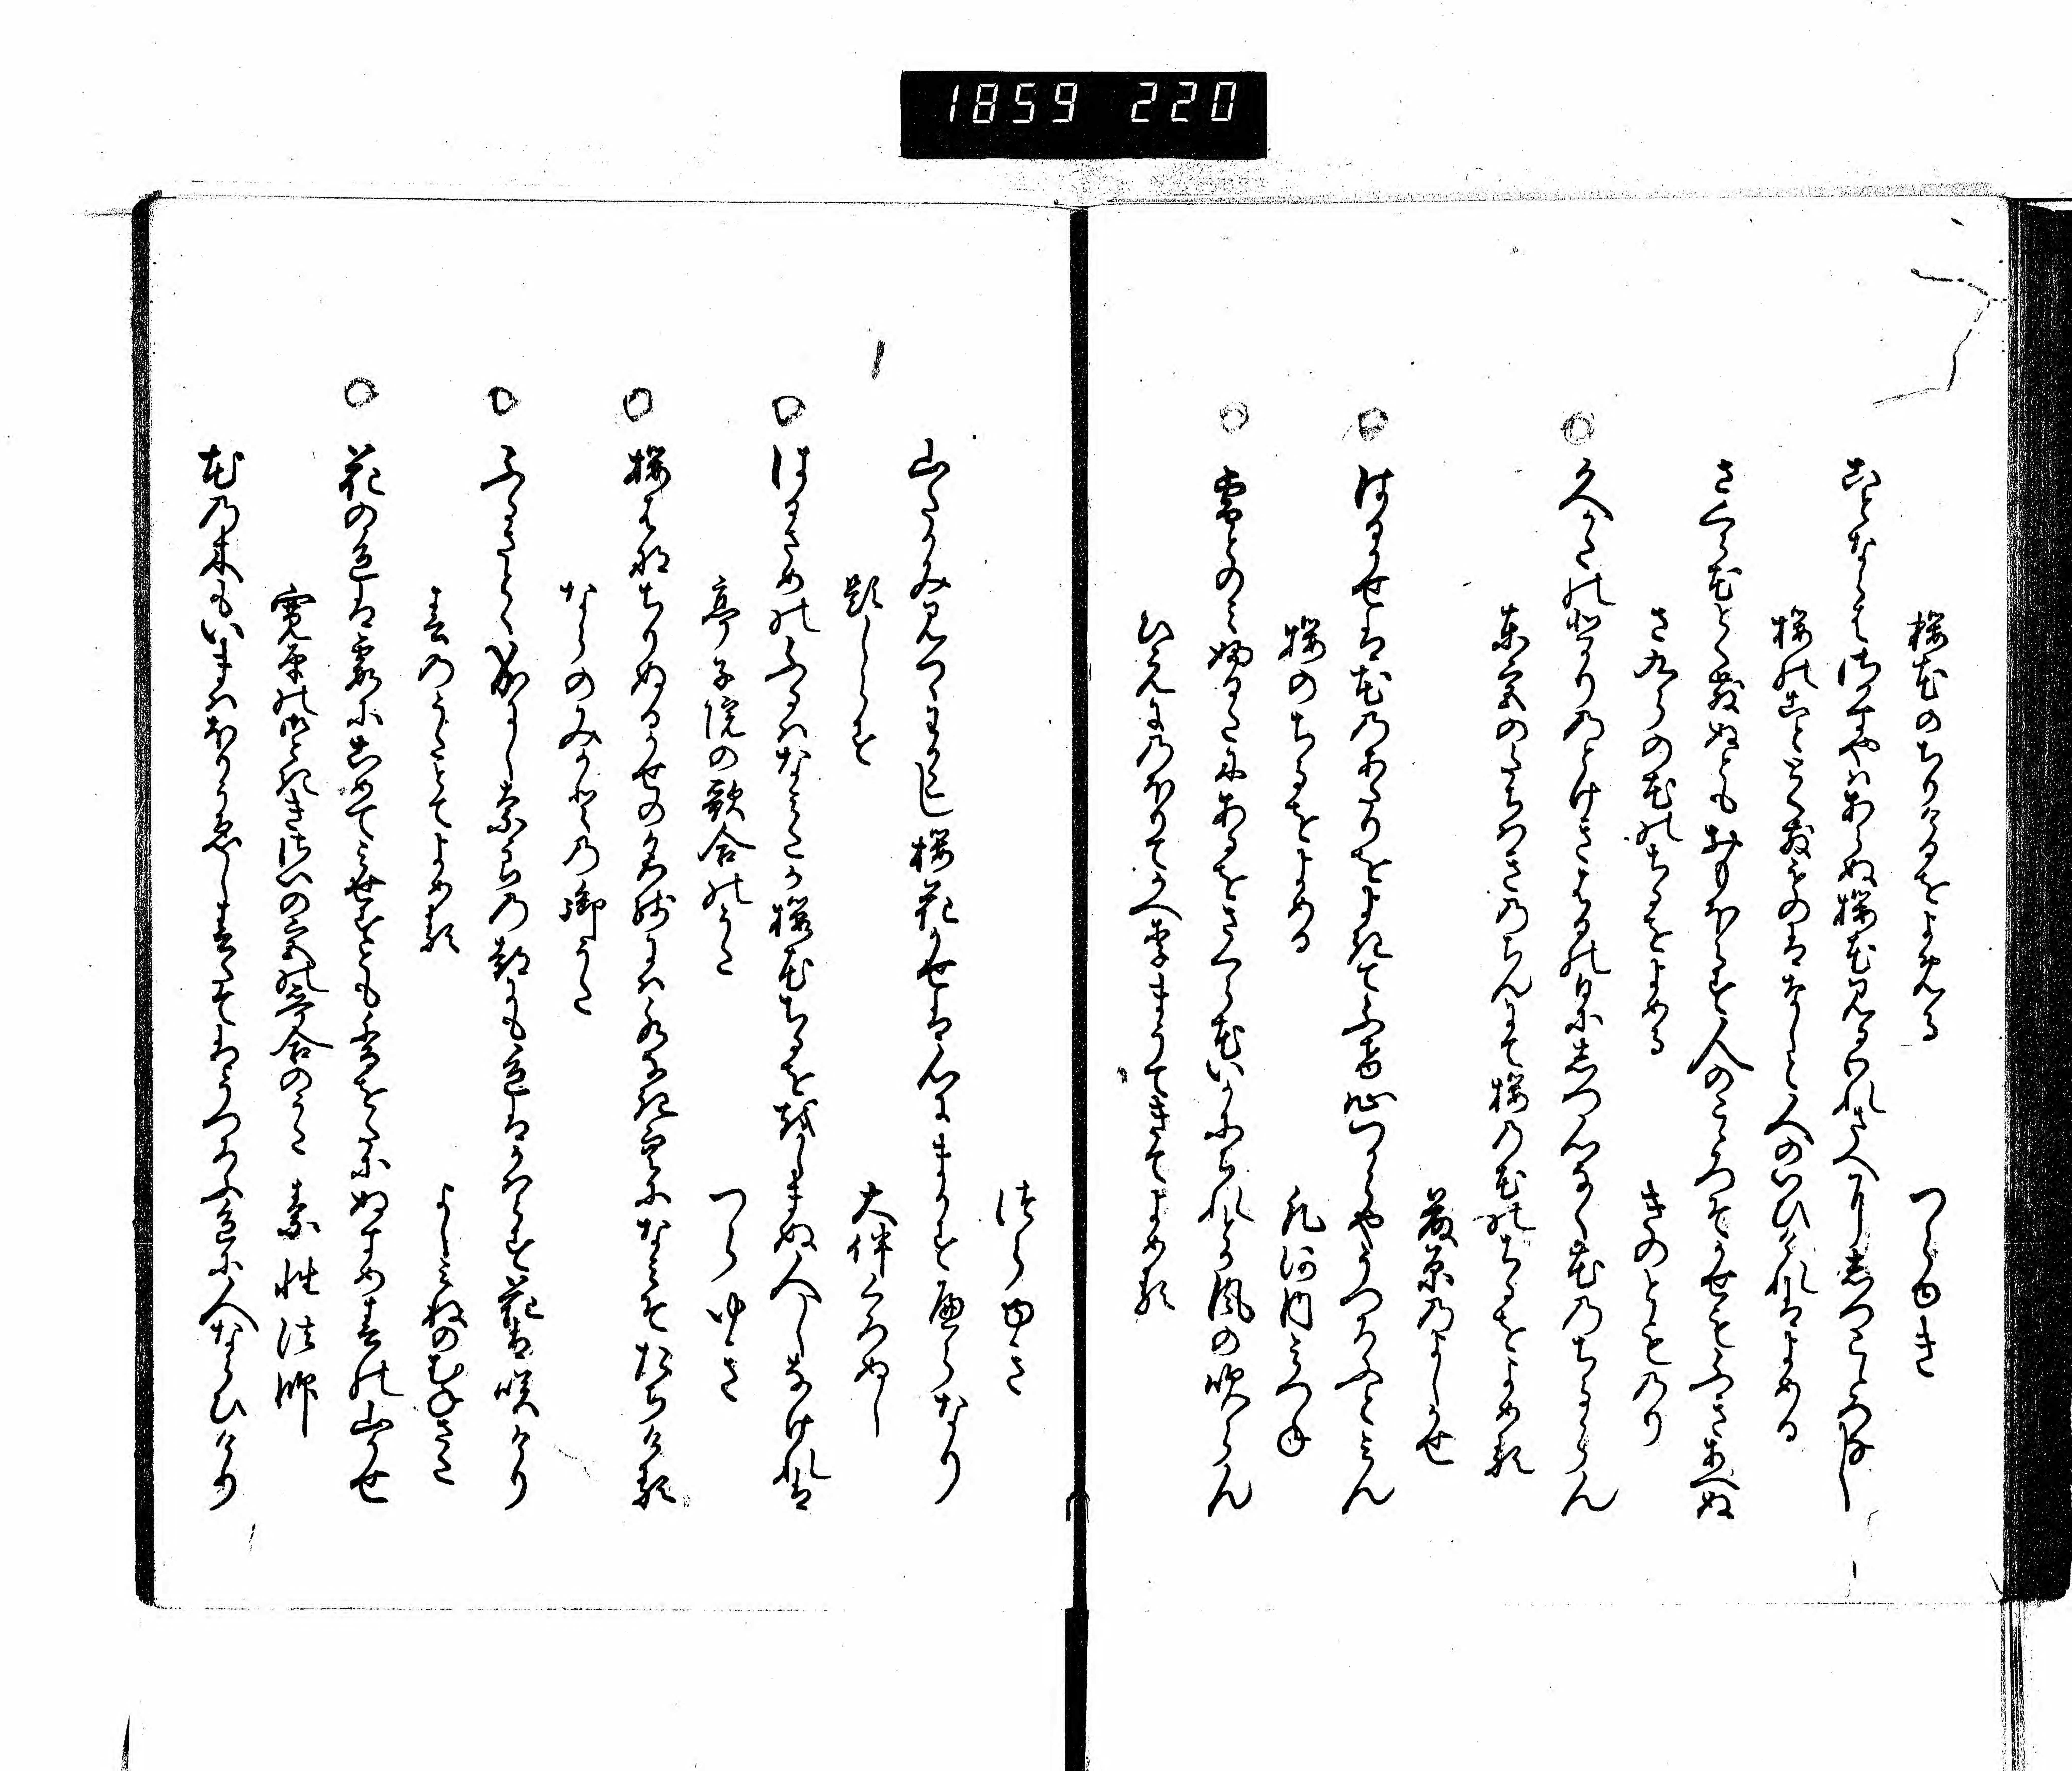 1859 220
桜花のちりけるをよめる つらゆき
ことならはさかすやはあらぬ桜花見るわれさへにしつこゝろなし
桜のことゝくちるものはなしと人のいひけれはよめる
さくら花とくちりぬともおもほえす人のこゝろそかせもふきあへぬ
さくらの花のちるをよめる きのとものり
久かたのひかりのとけきはるの日にしつ心なく花のちるらん
東宮のたちはきのちんにて桜の花のちるをよめる
藤原のよしかせ
はるかせは花のあたりをよきてふけ心つからやうつろふとみん
桜のちるをよめる 凡河内みつね
雪とのみふるたにあるをさくら花いかにちれとか風の吹らん
ひえにのほりてかへりまうてきてよめる
つらゆき
山たかみ見つゝわかこし桜花かせは心にまかすへらなり
題しらす 大伴くろぬし
はるさめのふるはなみたか桜花ちるをおしまぬ人しなけれは
亭子院の歌合のうた つらゆき
桜はなちりぬるかせの名残には水なき空になみそたちける
ならのみかとの御うた
ふるさとゝなりにし奈良の都にも色はかはらす花は咲けり
春のうたとてよめる よしみねのむねさた
花の色は霞にこめてみせすとも香をたにぬすめ春の山かせ
寛平の御ときさいの宮の哥合のうた 素性法師
花の木もいまはほりうゑし春たてはうつろふ色に人ならひけり